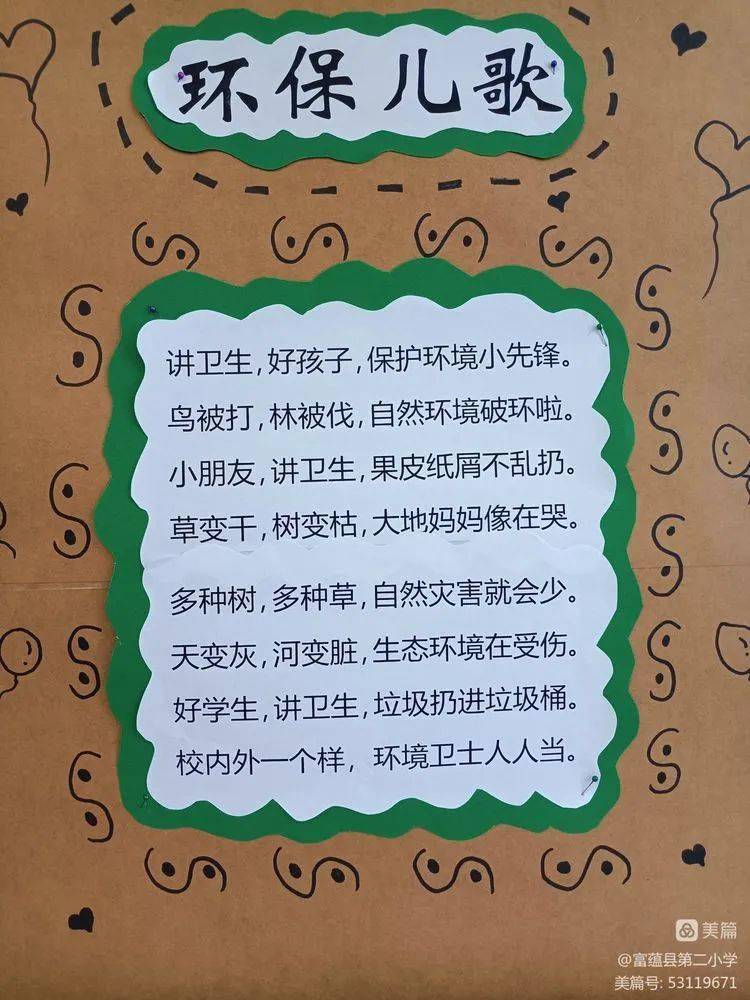 环保儿歌
讲卫生,好孩子,保护环境小先锋。
鸟被打,林被伐,自然环境破环啦。
小朋友,讲卫生,果皮纸屑不乱扔。
草变干,树变枯,大地妈妈像在哭。
多种树,多种草,自然灾害就会少。
天变灰,河变脏,生态环境在受伤。
好学生,讲卫生,垃圾扔进垃圾桶。
校内外一个样，环境卫士人人当。
美篇
@富蕴县第二小学
美篇号: 53119671